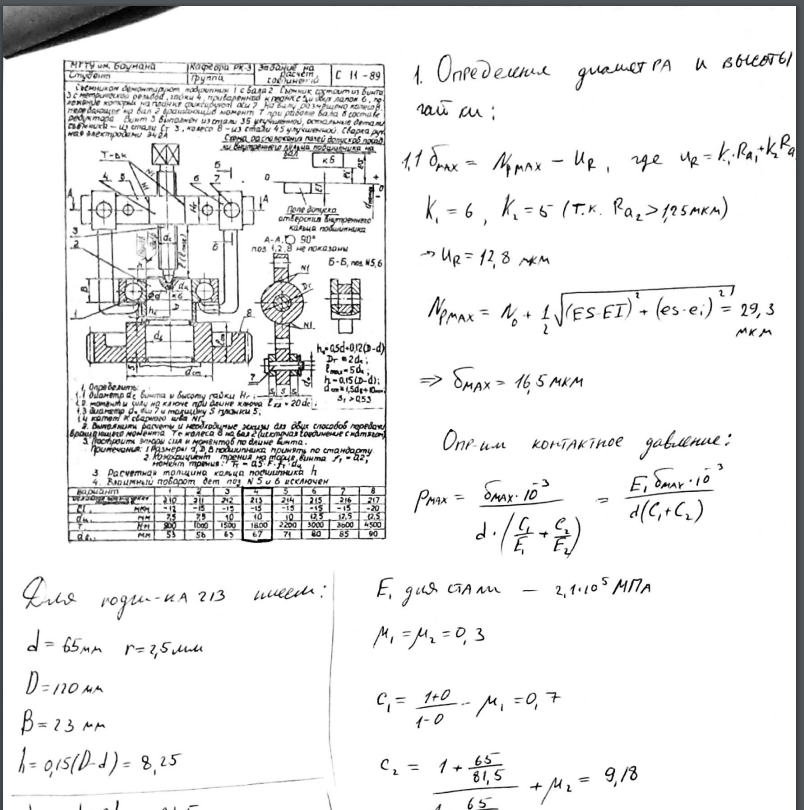 МГТУ им. Баумана
Кафедра РК-3
Задание на расчет соединений
С 11-89
Студент
Группа
Съемником демонтируют подшипник 1 с вала 2. Съемник состоит из винта
3 с метрической резьбой, гайки 4, приваренной к траверсе 5 и двух лапок 6, по-
ложение которых на планке фиксируют оси 7. На валу размещено колесо 8,
передающее на вал 2 вращающий момент Т при работе вала в составе
редуктора. Винт 3 выполнен из стали 35 улучшенной, остальные детали
съемника - из стали Ст 3, колесо 8 - из стали 45 улучшенной. Сварка руч-
ная электродами Э42А
Схема расположения полей допусков посад-
ки внутреннего кольца подшипника на
вал
Т-вк
Поле допуска
отверстия внутреннего
кольца подшипника
А-А, 90°
поз 1,2,8 не показаны
Б-Б, поз N 5,6
h₀=0,5d+0,12(D-d)
Dг=2d₀;
ℓmax=5d₀;
h=0,15(D-d);
1. Определить:
1.1 диаметр d₀ винта и высоту гайки Hг;
1.2 момент и силу на ключе при длине ключа ℓкл=20d₀;
1.3 диаметр d₀ оси 7 и толщину S планки 5;
1.4 катет К сварного шва N1.
2. Выполнить расчеты и необходимые эскизы для двух способов передачи
вращающего момента Т с колеса 8 на вал 2 (шпоночная соединение с натягом).
3. Построить эпюры сил и моментов по длине винта.
Примечания: 1. Размеры d, D, B подшипника принять по стандарту
2. Коэффициент трения на торце винта f₁=0,2,
момент трения: Tт=0,5·F·f₁·dц
3. Расчетная толщина кольца подшипника h
4. Взаимный поворот дет поз N 5 и 6 исключен
вариант 1 2 3 4 5 6 7 8
210 211 212 213 214 215 216 217
EI мкм -12 -15 -15 -15 -15 -15 -15 -20
dц мм 7,5 7,5 10 10 10 12,5 12,5 12,5
T Нм 800 1000 1500 1800 2200 3000 3600 4500
мм 53 56 63 67 71 80 85 90
1. Определение диаметра и высоты
гайки:
1,1 δmax = Npmax − UR, где UR = K₁·Ra₁+K₂Ra
K₁ = 6, K₂ = 5 (т.к. Ra₂ > 1,25 мкм)
→ UR = 12,8 мкм
Npmax = N₀ + 1/2 √((ES-EI)² + (es-ei)²) = 29,3
мкм
⇒ δmax = 16,5 мкм
Опр-им контактное давление:
pmax = δmax·10⁻³ / (d·(C₁/E₁ + C₂/E₂)) = E₁δmax·10⁻³ / (d(C₁+C₂))
Для подш-ка 213 имеем:
d = 65 мм r = 2,5 мм
D = 120 мм
B = 23 мм
h = 0,15(D-d) = 8,25
E, для стали — 2,1·10⁵ МПа
μ₁ = μ₂ = 0,3
C₁ = (1+0)/(1-0) − μ₁ = 0,7
C₂ = 1 + 65/81,5 + μ₂ = 9,18
65